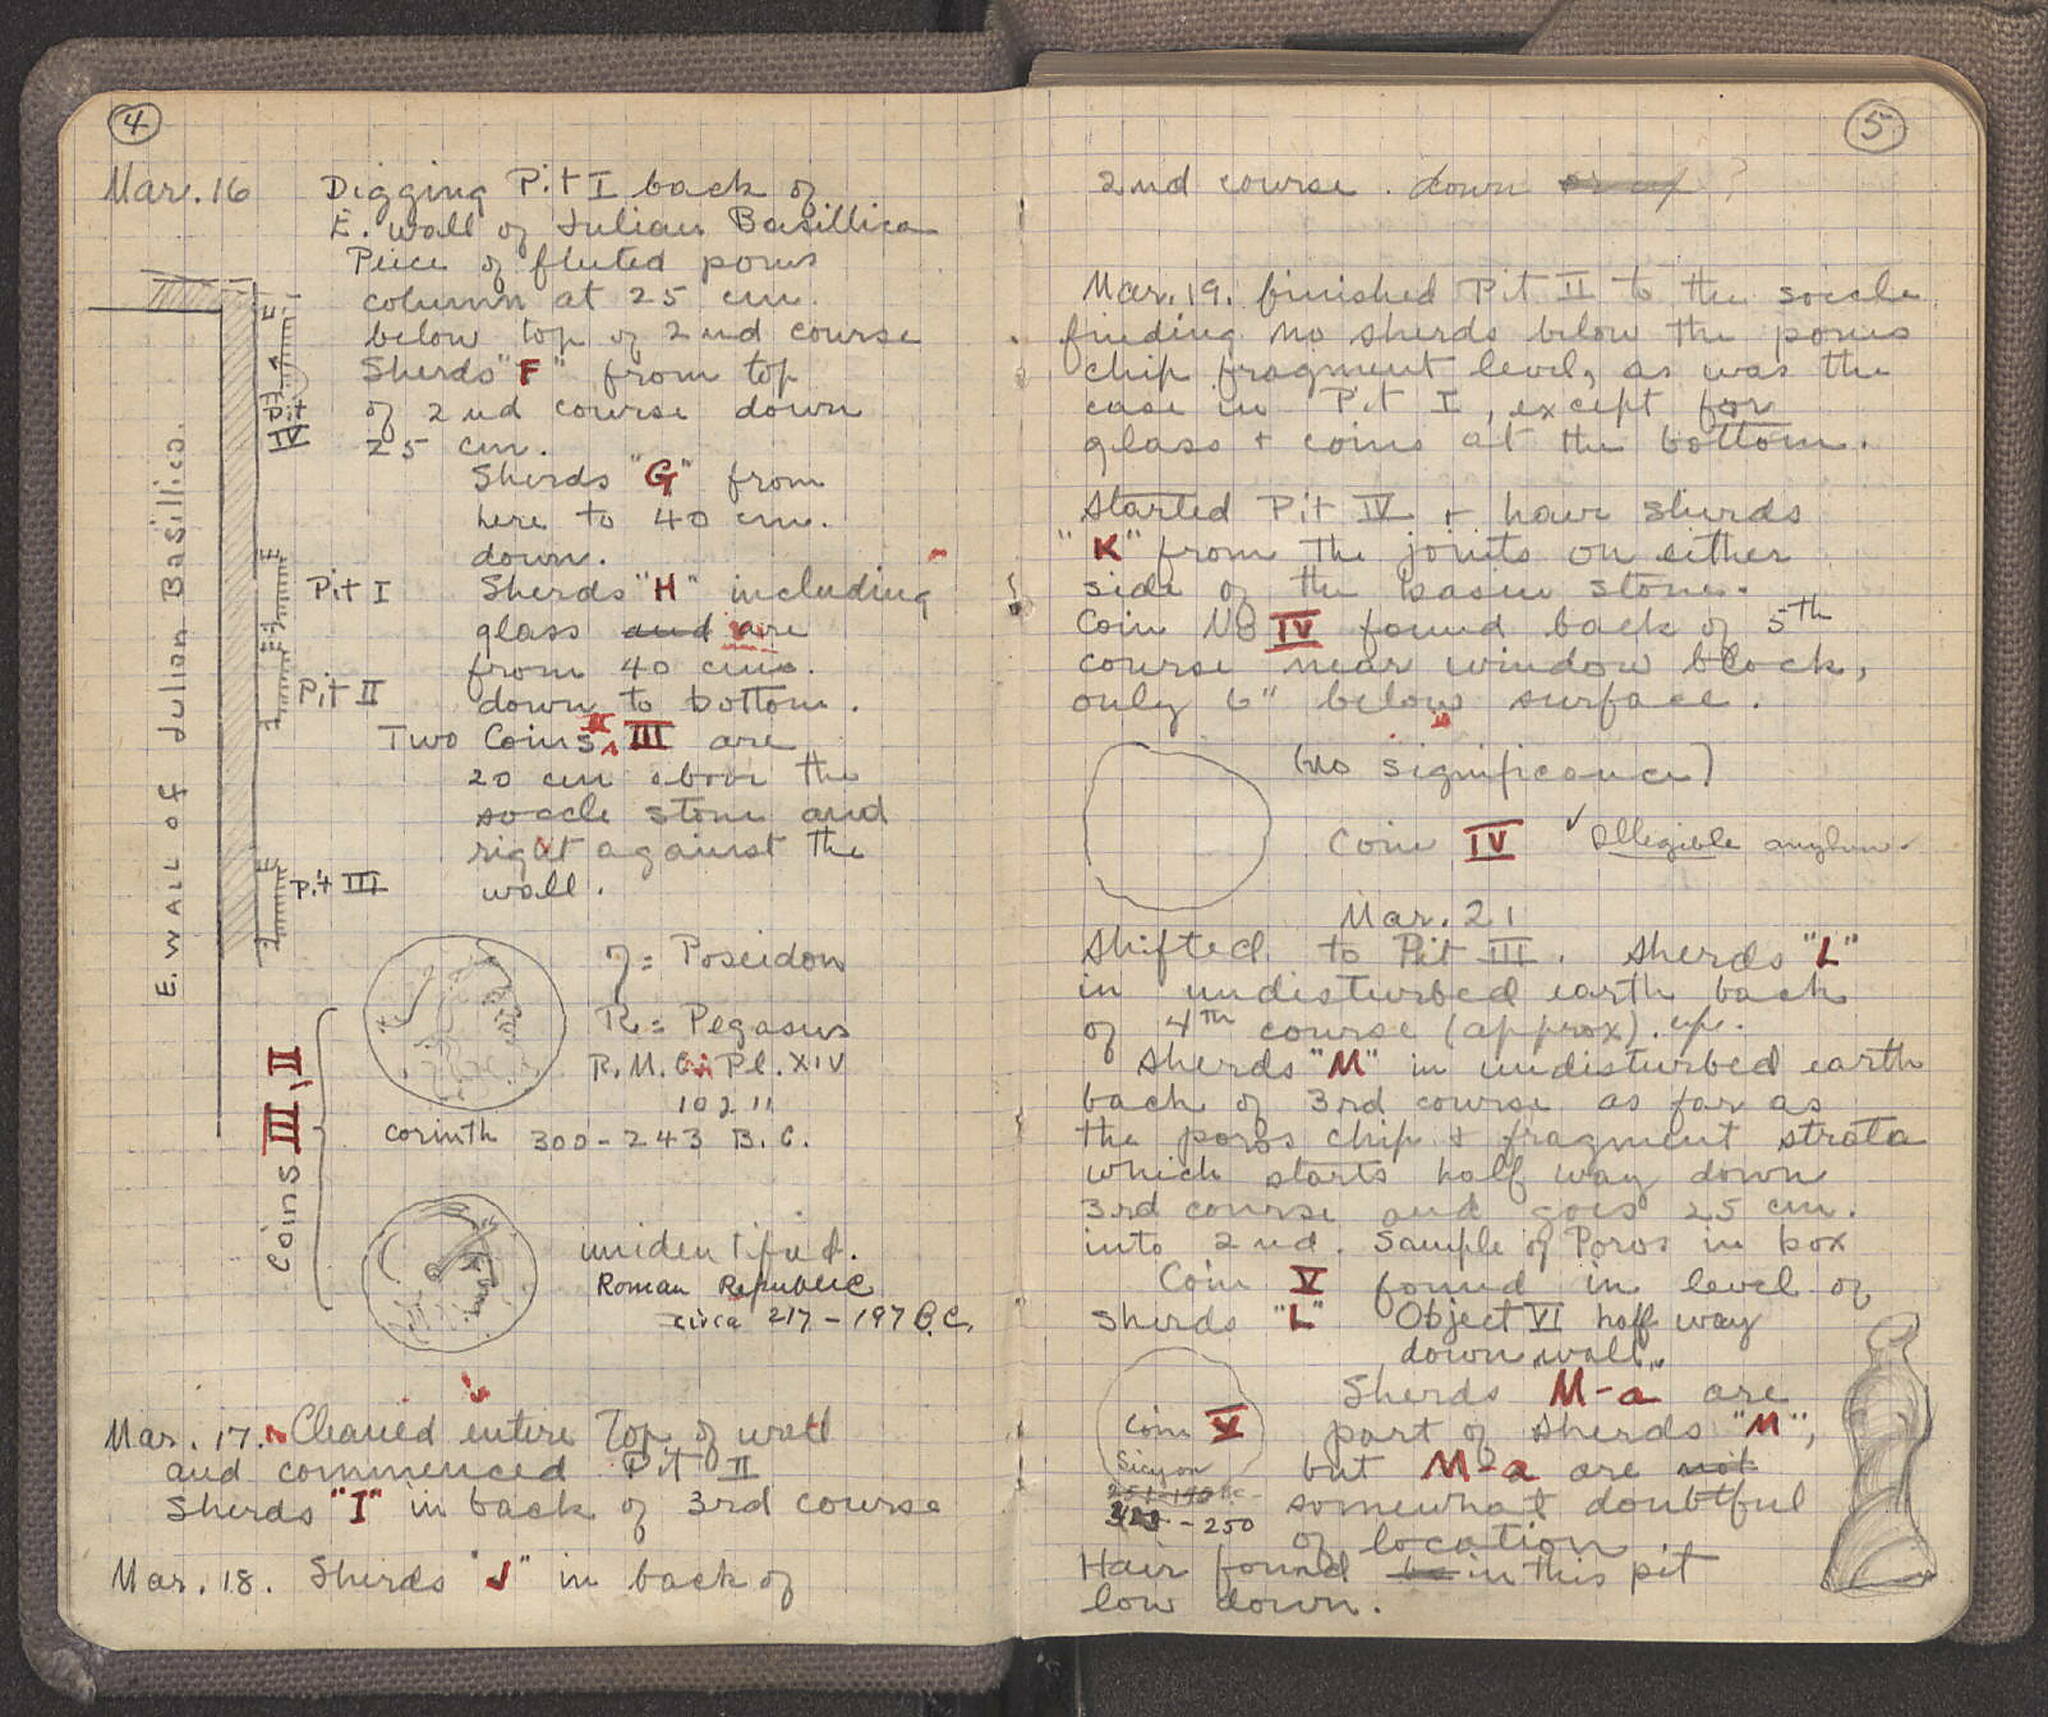 4
Mar. 16 Digging Pit I back of
E. wall of Julian Basillica
Peice of fluted poros
column at 25 cm.
below top of 2nd course
Sherds "F" from top
of 2nd course down
25 cm.
Sherds "G" from
here to 40 cm.
down.
Sherds "H" including
glass and are
from 40 cms.
down to bottom.
Two Coins, II III are
20 cm above the
soccle stone and
right against the
wall.
E. WALL of Julian Basillica.
Pit IV
Pit I
Pit II
Pit III
Coins III, II
= Poseidon
R. = Pegasus
Pl. XIV
10 11
Corinth 300-243 B.C.
unidentified.
Roman Republic
circa 217-197 B.C.
Mar. 17. Cleaned entire Top of wall
and commenced Pit II
Sherds "I" in back of 3rd course
Mar. 18. Sherds "J" in back of
5
2nd course. down or up ?
Mar. 19. finished Pit II to the soccle
finding no sherds below the poros
chip fragment level, as was the
case in Pit I, except for
glass + coins at the bottom.
Started Pit IV + have sherds
"K" from the joints on either
side of the basin stone.
Coin No IV found back of 5th
course near window block,
only 6" below surface.
(no significance)
Coin IV ✓ Illegible
Mar. 21
Shifted to Pit III. Sherds "L"
in undisturbed earth back
of 4th course (approx). up.
Sherds "M" in undisturbed earth
back of 3rd course as far as
the poros chip & fragment strata
which starts half way down
3rd course and goes 25 cm.
into 2nd. Sample of Poros in box
Coin V found in level of
sherds "L" Object VI half way
down wall.
Coin V
Sicyon
251-146 BC.
323-250
Sherds M-a are
part of sherds "M",
but M-a are not
somewhat doubtful
of location
Hair found be in this pit
low down.